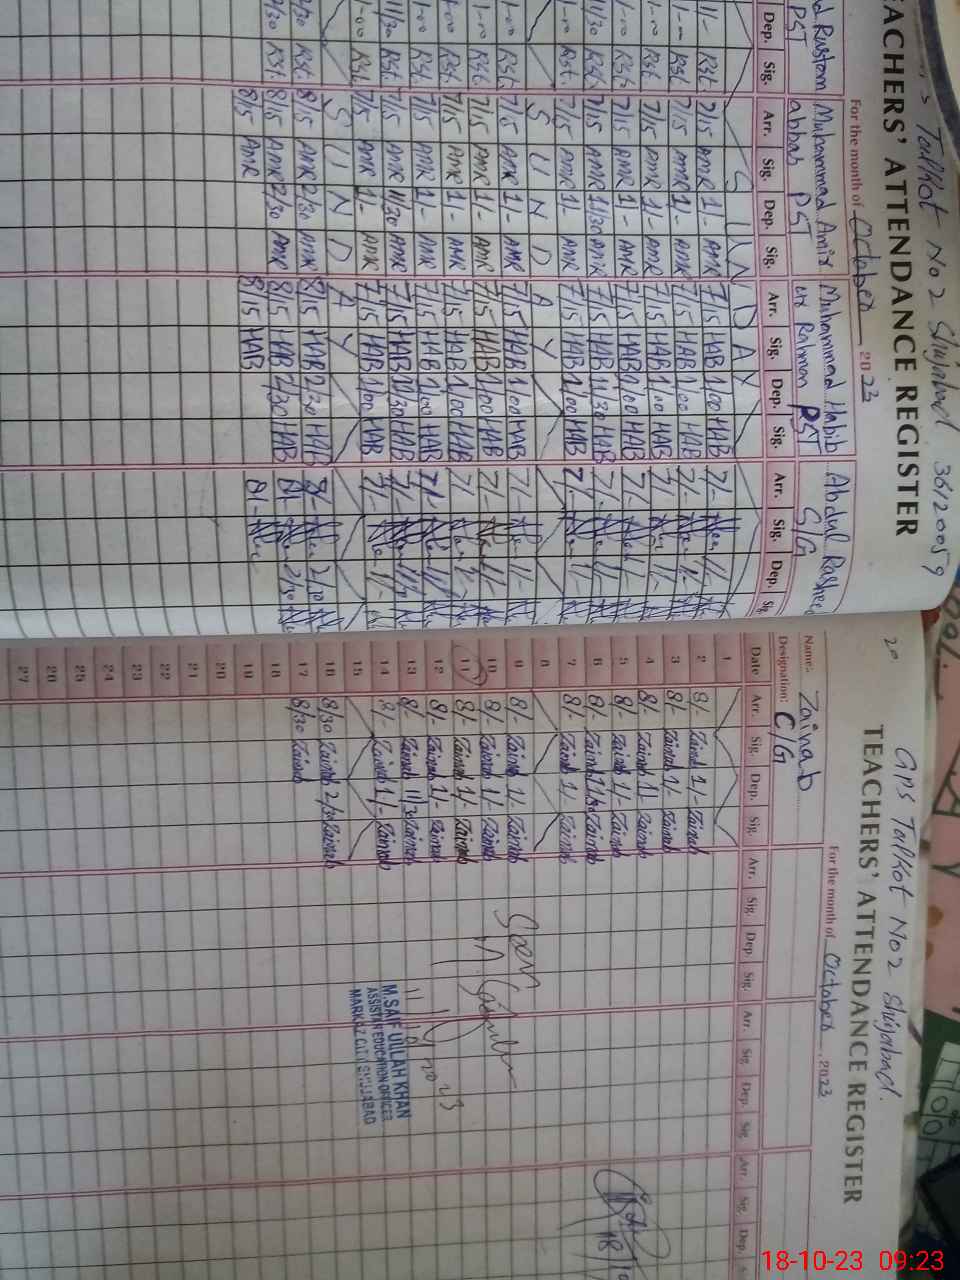 Talkot No 2 Shujabad 36120059
TEACHERS' ATTENDANCE REGISTER
For the month of October 2023
Rustam Muhammad Amir Muhammad Habib Abdul Rasheed
PST abbas PST ur Rahman PST S/G
Dep. Sig. Arr. Sig. Dep. Sig. Arr. Sig. Dep. Sig. Arr. Sig. Dep.
S U N D A Y
7/15 AMR 1/- AMR 7/15 HAB 1/00 HAB 7/-
7/15 AMR 1/- AMR 7/15 HAB 1/00 HAB 7/-
7/15 AMR 1/- AMR 7/15 HAB 1/00 HAB 7/-
7/15 AMR 1/- AMR 7/15 HAB 1/00 HAB 7/-
7/15 AMR 11/30 AMR 7/15 HAB 11/30 HAB 7/-
7/15 AMR 1/- AMR 7/15 HAB 1/00 HAB 7/-
S U N D A Y
7/15 AMR 1/- AMR 7/15 HAB 1/00 HAB 7/-
7/15 AMR 1/- AMR 7/15 HAB 1/00 HAB 7/-
7/15 AMR 1/- AMR 7/15 HAB 1/00 HAB 7/-
7/15 AMR 1/- AMR 7/15 HAB 1/00 HAB 7/-
7/15 AMR 11/30 AMR 7/15 HAB 11/30 HAB 7/-
7/15 AMR 1/- AMR 7/15 HAB 1/00 HAB 7/-
S U N D A Y
8/15 AMR 2/30 AMR 8/15 HAB 2/30 HAB 8/- 2/30
8/15 AMR 2/30 AMR 8/15 HAB 2/30 HAB 8/- 2/30
8/15 AMR 8/15 HAB 8/-
20 GPS Talkot No 2 Shujabad.
TEACHERS' ATTENDANCE REGISTER
For the month of October, 2023
Name: Zainab
Designation: C/G
Date Arr. Sig. Dep. Sig. Arr. Sig. Dep. Sig. Arr. Sig. Dep. Sig. Arr. Sig. Dep.
1
2 8/- Zainab 1/- Zainab
3 8/- Zainab 1/- Zainab
4 8/- Zainab 1/- Zainab
5 8/- Zainab 1/- Zainab
6 8/- Zainab 11/30 Zainab
7 8/- Zainab 1/- Zainab
8
9 8/- Zainab 1/- Zainab
10 8/- Zainab 1/- Zainab
11 8/- Zainab 1/- Zainab
12 8/- Zainab 1/- Zainab
13 8/- Zainab 11/30 Zainab
14 8/- Zainab 1/- Zainab
15
16 8/30 Zainab 2/30 Zainab
17 8/30 Zainab
18
19
20
21
22
23
24
25
26
27
Seen
M.SAIF ULLAH KHAN
ASSISTANT EDUCATION OFFICER
MARKAZ CITY SHUJABAD
18-10-23 09:23